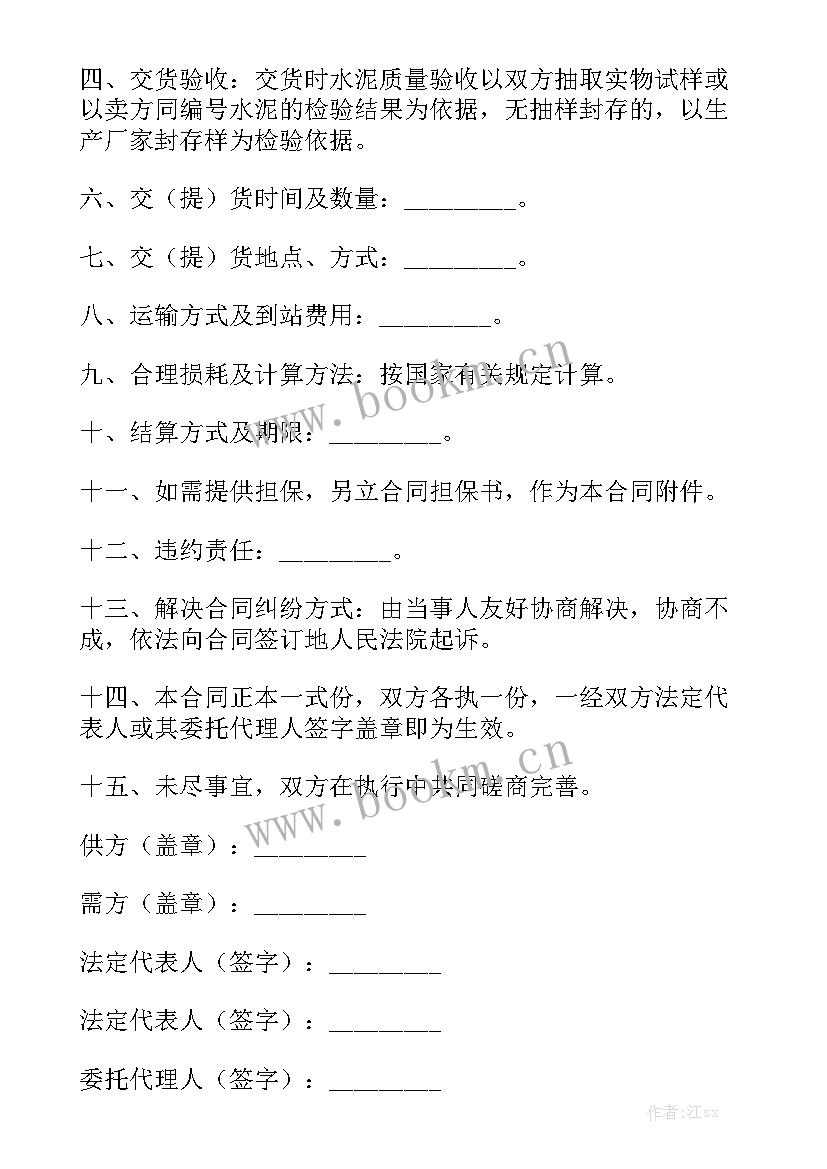 四、交货验收：交货时水泥质量验收以双方抽取实物试样或
以卖方同编号水泥的检验结果为依据，无抽样封存的，以生
产厂家封存样为检验依据。
六、交（提）货时间及数量：_________。
七、交（提）货地点、方式：_________。
八、运输方式及到站费用：_________。
九、合理损耗及计算方法：按国家有关规定计算。
十、结算方式及期限：_________。
十一、如需提供担保，另立合同担保书，作为本合同附件。
十二、违约责任：_________。
十三、解决合同纠纷方式：由当事人友好协商解决，协商不
成，依法向合同签订地人民法院起诉。
十四、本合同正本一式份，双方各执一份，一经双方法定代
表人或其委托代理人签字盖章即为生效。
十五、未尽事宜，双方在执行中共同磋商完善。
供方（盖章）：_________
需方（盖章）：_________
法定代表人（签字）：_________
法定代表人（签字）：_________
委托代理人（签字）：_________
www.bookm.cn
www.bookm.cn
作者:江sx